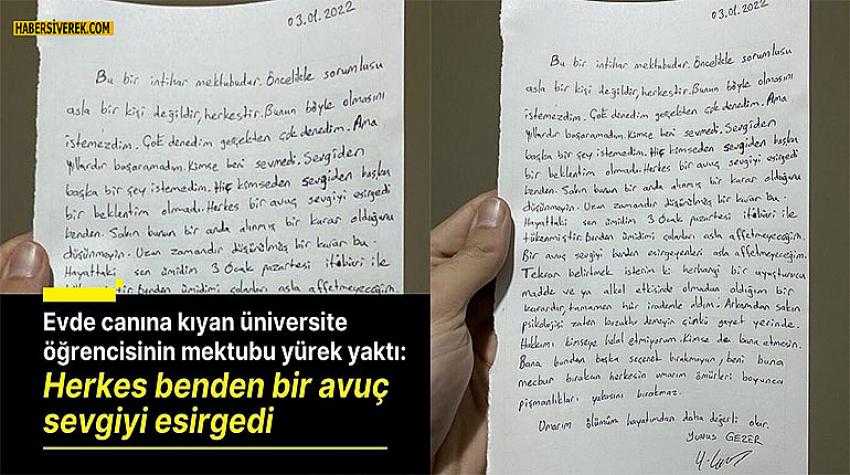 HABERSİVEREK.COM
03.01.2022
Bu bir intihar mektubudur. Öncelikle sorumlusu
asla bir kişi değildir, herkestir. Bunun böyle olmasını
istemezdim. Çok denedim gerçekten çok denedim. Ama
yıllardır başaramadım. Kimse beni sevmedi. Sevgiden
başka bir şey istemedim. Hiç kimseden sevgiden başka
bir beklentim olmadı. Herkes bir avuç sevgiyi esirgedi
benden. Sakın bunun bir anda alınmış bir karar olduğunu
düşünmeyin. Uzun zamandır düşünülmüş bir karar bu.
Hayattaki son ümidim 3 Ocak pazartesi itibari ile
Evde canına kıyan üniversite
öğrencisinin mektubu yürek yaktı:
Herkes benden bir avuç
sevgiyi esirgedi
03.01.2022
Bu bir intihar mektubudur. Öncelikle sorumlusu
asla bir kişi değildir, herkestir. Bunun böyle olmasını
istemezdim. Çok denedim gerçekten çok denedim. Ama
yıllardır başaramadım. Kimse beni sevmedi. Sevgiden
başka bir şey istemedim. Hiç kimseden sevgiden başka
bir beklentim olmadı. Herkes bir avuç sevgiyi esirgedi
benden. Sakın bunun bir anda alınmış bir karar olduğunu
düşünmeyin. Uzun zamandır düşünülmüş bir karar bu.
Hayattaki son ümidim 3 Ocak pazartesi itibari ile
tükenmiştir. Burdan ümidimi çalanları asla affetmeyeceğim.
Bir avuç sevgiyi benden esirgeyenleri asla affetmeyeceğim.
Tekrar belirtmek isterim ki herhangi bir uyuşturucu
madde ve ya alkol etkisinde olmadan aldığım bir
karardır, tamamen hür irademle aldım. Arkamdan sakın
psikolojisi zaten bozuktu demeyin çünkü gayet yerinde.
Hakkımı kimseye helal etmiyorum. Kimse de bana etmesin.
Bana bundan başka seçenek bırakmayan, beni buna
mecbur bırakan herkesin umarım ömürleri boyunca
pişmanlıkları yakasını bırakmaz.
Umarım ölümüm hayatımdan daha değerli olur.
YUNUS GEZER